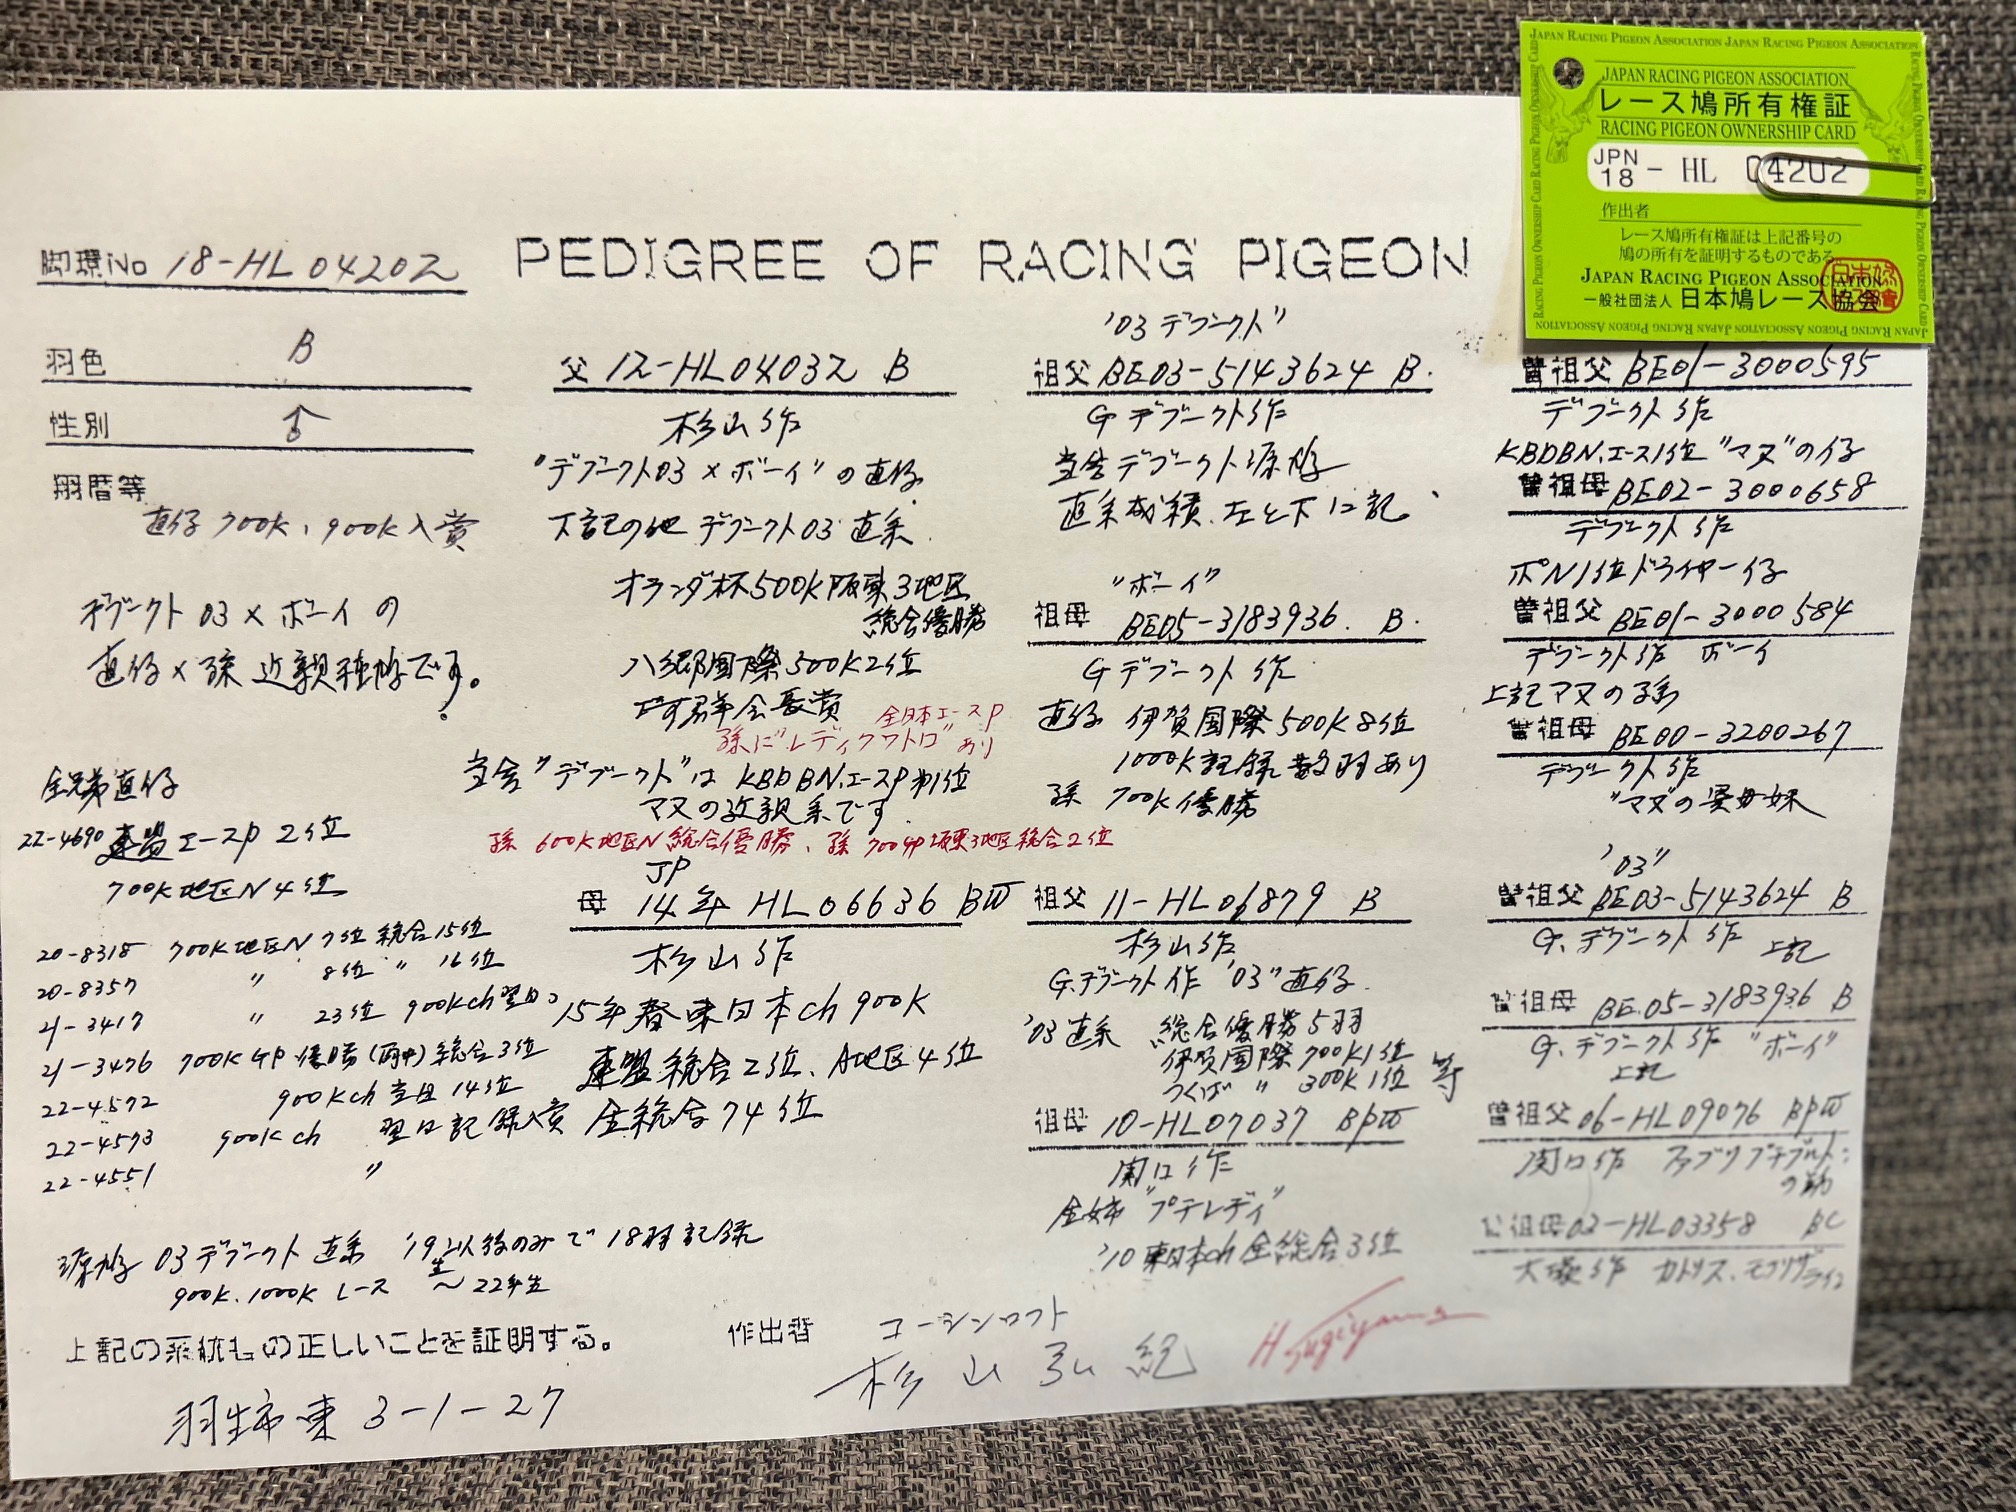 JAPAN RACING PIGEON ASSOCIATION
レース鳩所有権証
RACING PIGEON OWNERSHIP CARD
JPN
18 - HL 04202
作出者
レース鳩所有権証は上記番号の
鳩の所有を証明するものである
JAPAN RACING PIGEON ASSOCIATION
一般社団法人 日本鳩レース協会
PEDIGREE OF RACING PIGEON
脚環No 18-HL04202
羽色 B
性別 ♂
翔歴等
直仔 700K、900K入賞
デブークト03×ボーイの
直仔×孫 近親種鳩です。
全兄弟直仔
22-4690 連盟エースP 2位
700K地区N 4位
20-8318 700K地区N 7位 総合15位
20-8357 〃 8位 〃 16位
21-3417 〃 23位 900Kch翌日
21-3476 700KGP優勝(雨中)総合3位
22-4572 900Kch当日14位
22-4573 900Kch 翌日記録入賞
22-4551 〃
源鳩 03デブークト直系 '19生以後のみで18羽記録
900K、1000Kレース ～22年生
上記の系統もの正しいことを証明する。
羽生市東3-1-27
父 12-HL04032 B
杉山作
"デブークト03×ボーイ"の直仔
下記の他デブークト03直系
オランダ杯500K阪東3地区
総合優勝
八郷国際500K2位
です 会長賞
全日本エースP
孫に"レディクワトロ"あり
当舎"デブークト"はKBDBN.エースP第1位
マヌの近親系です
孫 600K地区N総合優勝、孫 700GP坂東3地区総合2位
JP
母 14年HL06636 BW
杉山作
15年春東日本ch900K
連盟総合2位、A地区4位
全総合74位
'03デブークト"
祖父 BE03-5143624 B.
Gデブークト作
当舎デブークト源鳩
直系成績、左と下に記
"ボーイ"
祖母 BE05-3183936. B.
Gデブークト作
直仔 伊賀国際500K8位
1000K記録数羽あり
孫 700K優勝
祖父 11-HL06879 B
杉山作
G.デブークト作'03"直仔
'03直系 総合優勝5羽
伊賀国際700K1位
つくば 〃 300K1位 等
祖母 10-HL07037 BPW
関口作
全姉"プテレディ"
'10東日本ch全総合3位
曽祖父 BE01-3000595
デブークト作
KBDBN.エース1位"マヌ"の仔
曽祖母 BE02-3000658
デブークト作
ポN1位ドライヤー仔
曽祖父 BE01-3000584
デブークト作 ボーイ
上記マヌの孫
曽祖母 BE00-3200267
デブークト作
"マヌ"の異母妹
'03"
曽祖父 BE03-5143624 B
G.デブークト作 上記
曽祖母 BE.05-3183936 B
G.デブークト作 "ボーイ"
上記
曽祖父 06-HL09076 BPW
関口作
曽祖母 02-HL03358 BC
大塚作
作出者 コーシンロフト
杉山弘紀 H Sugiyama